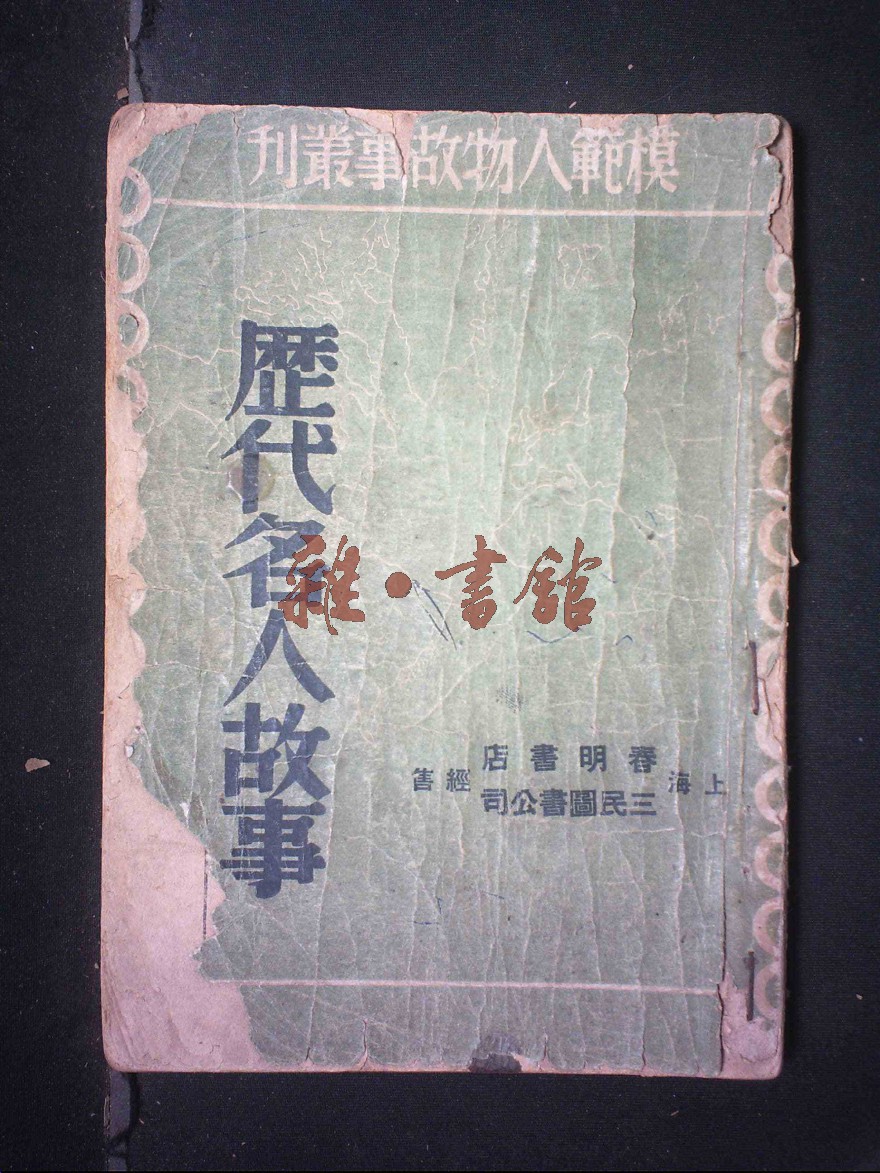 模範人物故事叢刊
歷代名人故事
雜·書館
上海
春明書店
三民圖書公司
經售